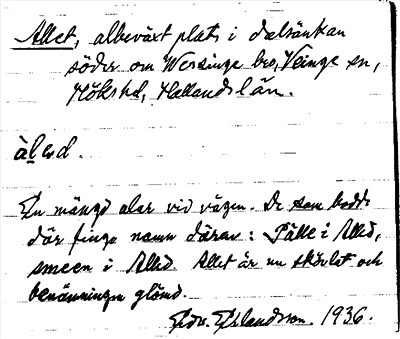 Allet, albeväxt plats i dalsänkan
söder om Wessinge bro, Veinge sn,
Höks hd, Hallands län.
En mängd alar vid vägen. De som bodde
där finge namn därav: Pålle i Alled,
smeen i Alled. Allet är nu skövlat och
benämningen glömd.
Edv. Erlandsson. 1936.